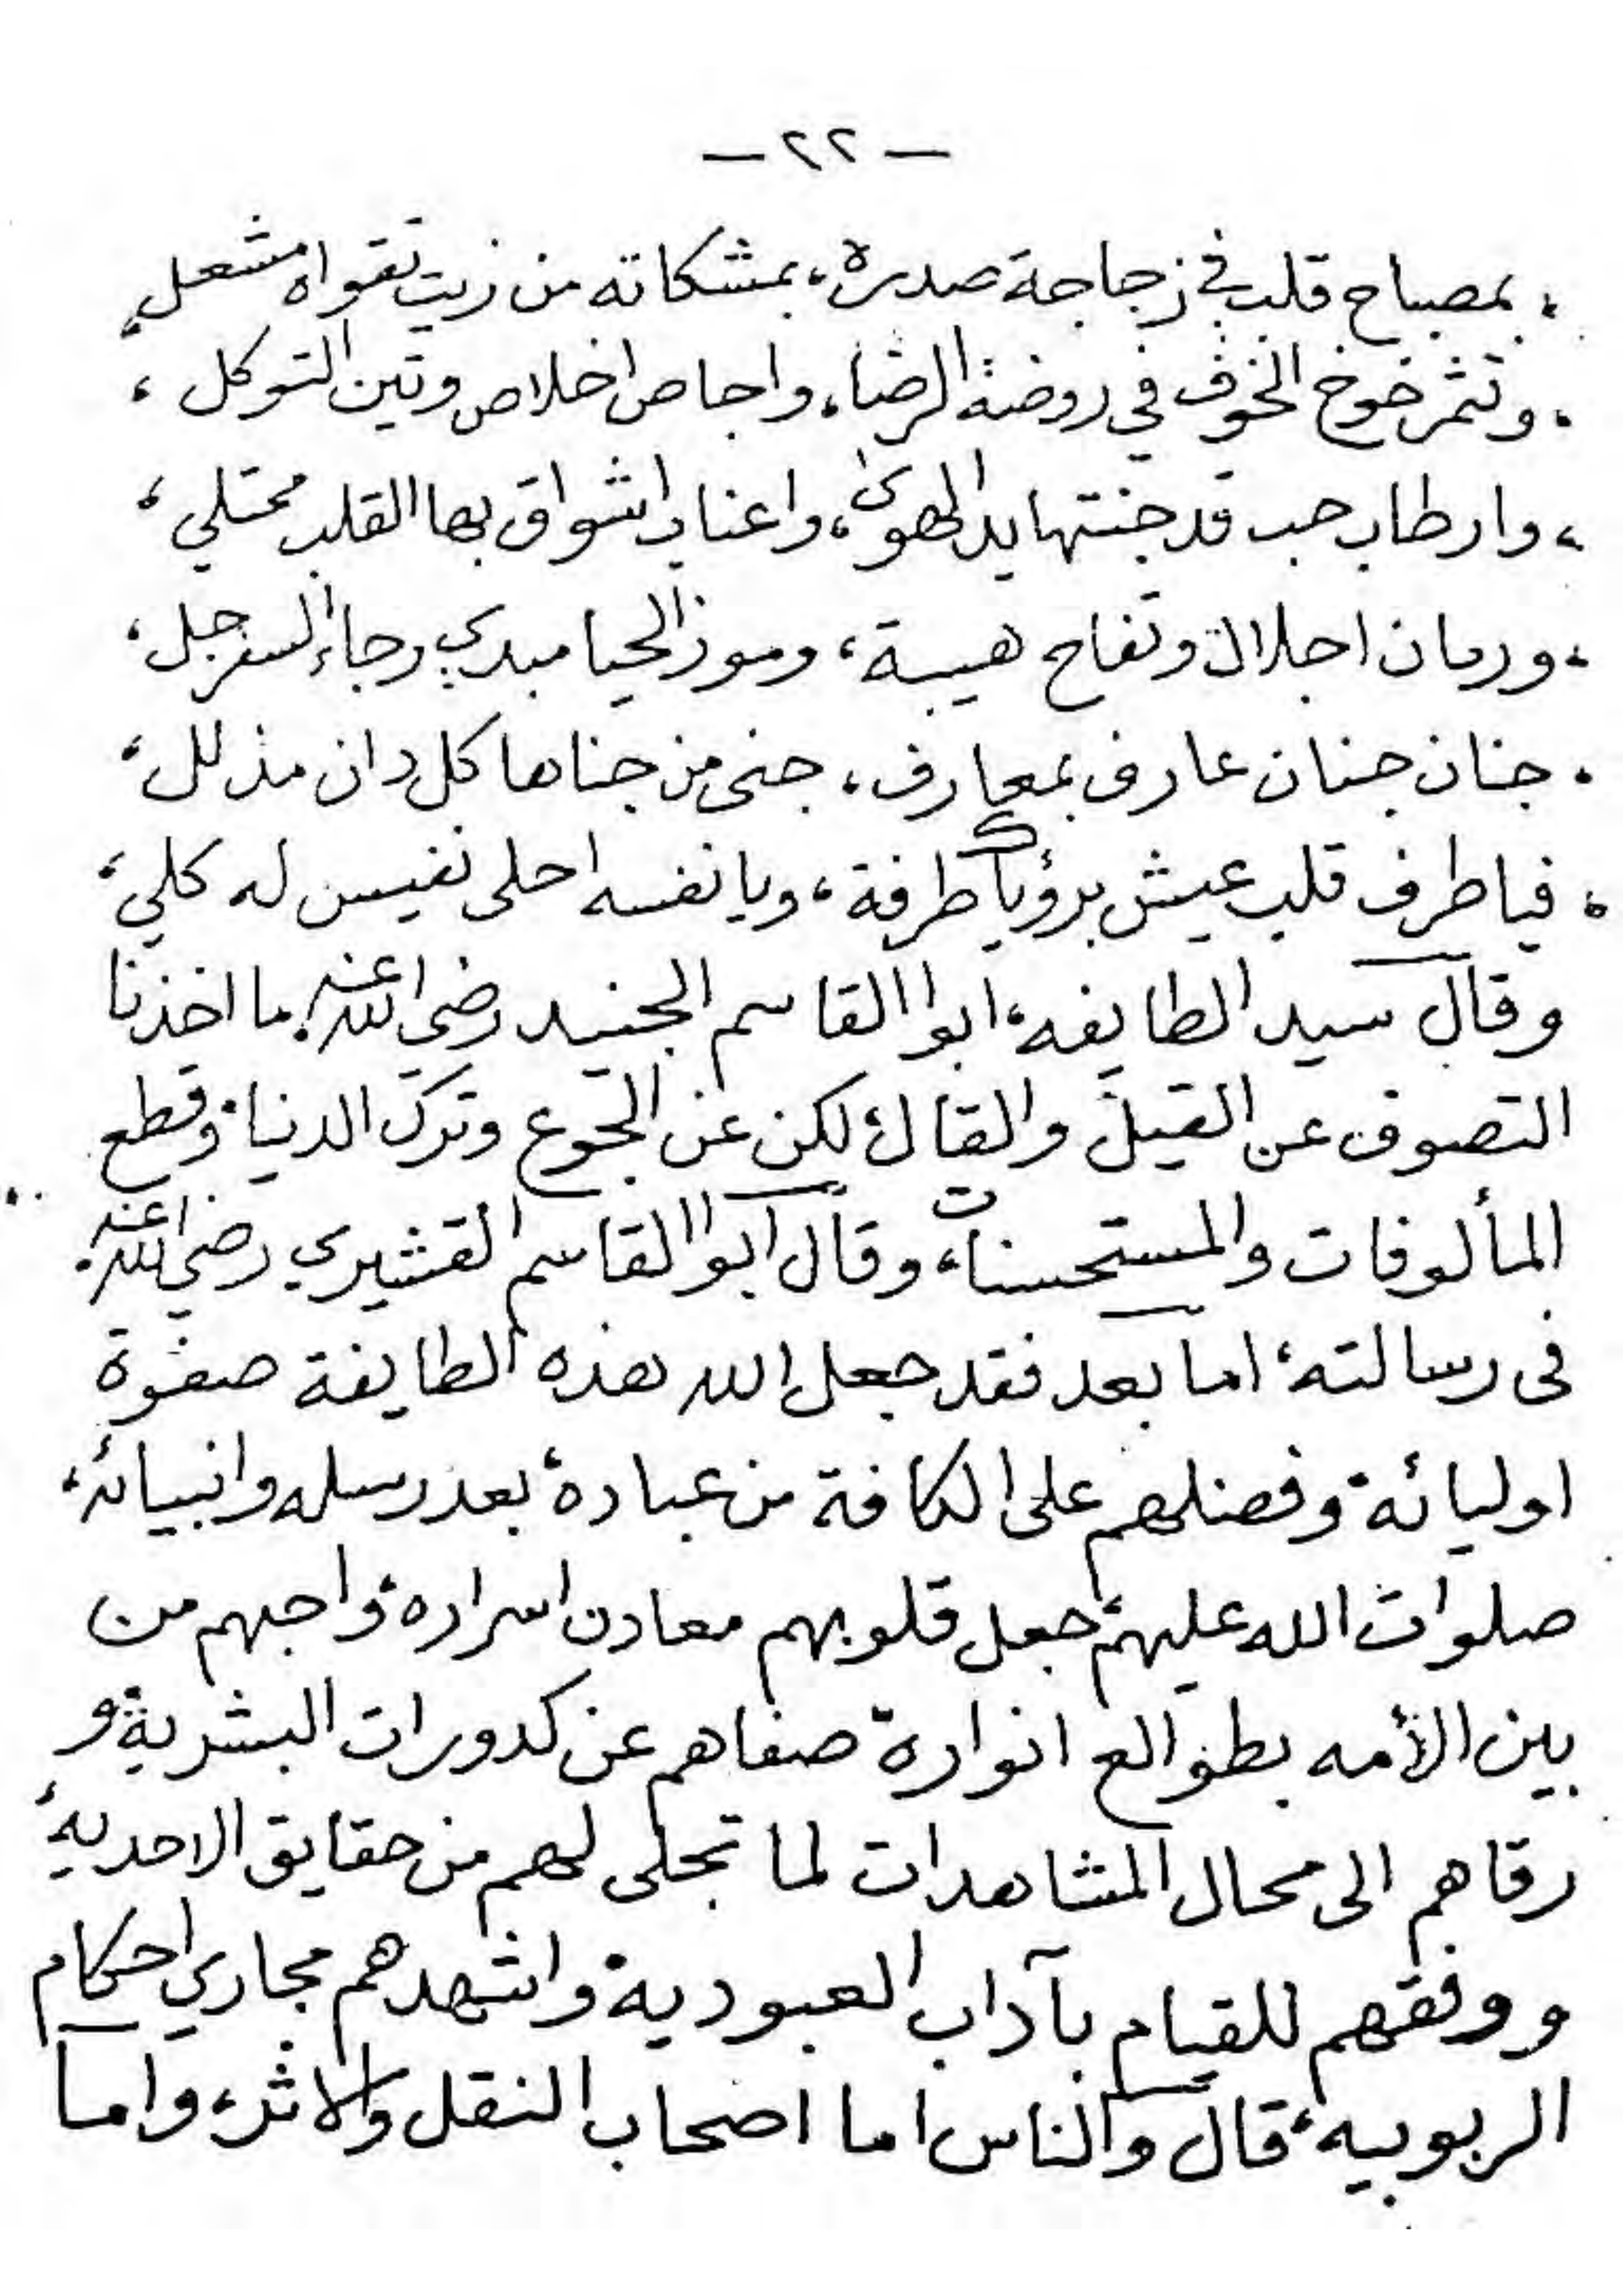 — ٢٢ —
، بمصباح قلب في زجاجة صدره ، بمشكاته من زيت تقواه مشعل ،
، وتثمر خوخ الخوف في روضة الرضاء ، واجاص اخلاص وتين التوكل ،
، وارطاب حب قد جنتها يد الهوى ، واعناب اشواق بها القلب محتلي ،
، ورمان اجلال وتفاح هيبة ، وموز الحيا مبدي رجاء السفرجل ،
، جنان جنان عارف بمعارف ، جنى من جناها كل دان مذلل ،
، فيا طرف قلب عيش برؤياك طرفة ، ويا نفسه احلى نفيس له كلي ،
وقال سيد الطايفه ، ابوا القاسم الجنيد رضي الله عنه ، ما اخذنا
التصوف عن القيل والقال ، لكن عن الجوع وترك الدنيا ، وقطع
المألوفات والمستحسنات ، وقال ابوا القاسم القشيري رضي الله عنه ،
فى رسالته ، اما بعد فقد جعل الله هذه الطايفة صفوة
اوليائه ، وفضلهم على الكافة من عباده ، بعد رسله وانبيائه ،
صلوات الله عليهم ، جعل قلوبهم معادن اسراره ، واجبهم من
بين الأمه بطوالع انواره ، صفاهم عن كدورات البشرية ، و
رقاهم الى محال المشاهدات لما تجلى لهم من حقايق الاحديه ،
ووفقهم للقيام بآداب العبودية ، واشهدهم مجاري احكام
الربوبيه ، قال والناس اما اصحاب النقل والاثر ، واما